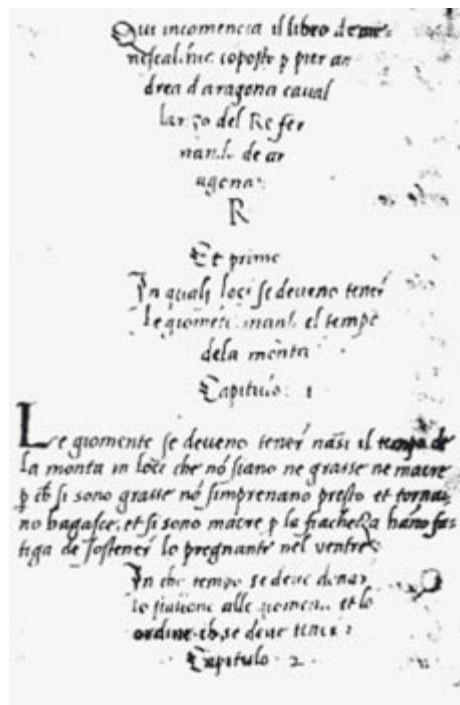 Qui incomencia il libro de me-
nescalcirie cōposto p pier an
drea d aragona caval
larizo del Re fer
nando de ar
agona:
R
Et prime
In quali loci se deveno tener
le giomēte nanti el tempo
dela monta
Capitulo: 1
Le giomente se deveno tener nāsi il tempo de
la monta in loci che nō siano ne grasse ne macre
p ch si sono grasse nō simprenano presto et torna-
no bagasce, et si sono macre p la fiacheza hāno fa-
tiga de sostener lo pregnante nel ventre
In che tempo se deve donar
lo stalone alle giomente et lo
ordine ch se deve tener:
Capitulo · 2 ·